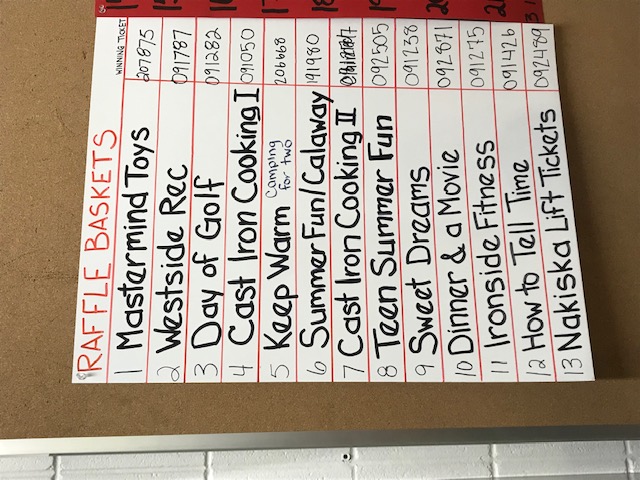 RAFFLE BASKETS WINNING TICKET
1 Mastermind Toys 207875
2 Westside Rec 091787
3 Day of Golf 091282
4 Cast Iron Cooking I 091050
5 Keep Warm Camping for two 206668
6 Summer Fun/Calaway 191980
7 Cast Iron Cooking II
8 Teen Summer Fun 092505
9 Sweet Dreams 091738
10 Dinner & a Movie 092871
11 Ironside Fitness 091275
12 How to Tell Time 091426
13 Nakiska Lift Tickets 092489